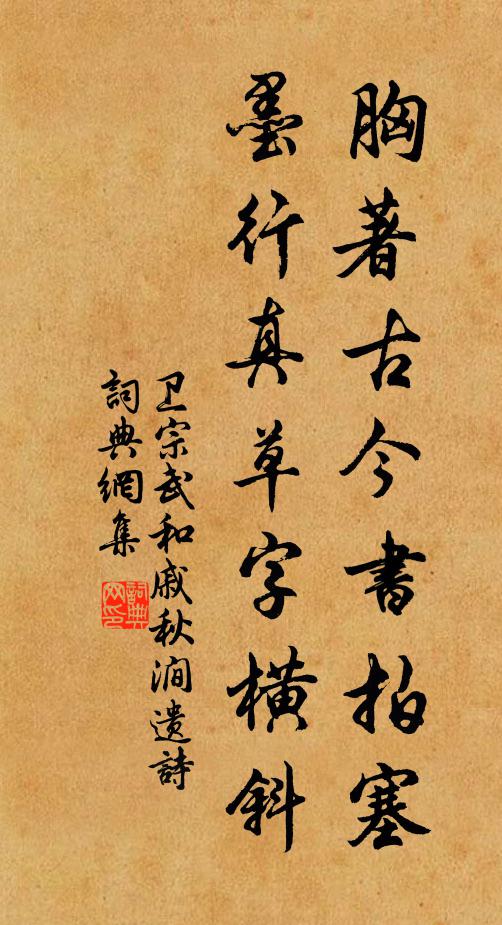 胸著古今書拍塞
墨行真草字橫斜
卫宗武和戚秋澗遺詩
詞典網集
詞典
网印